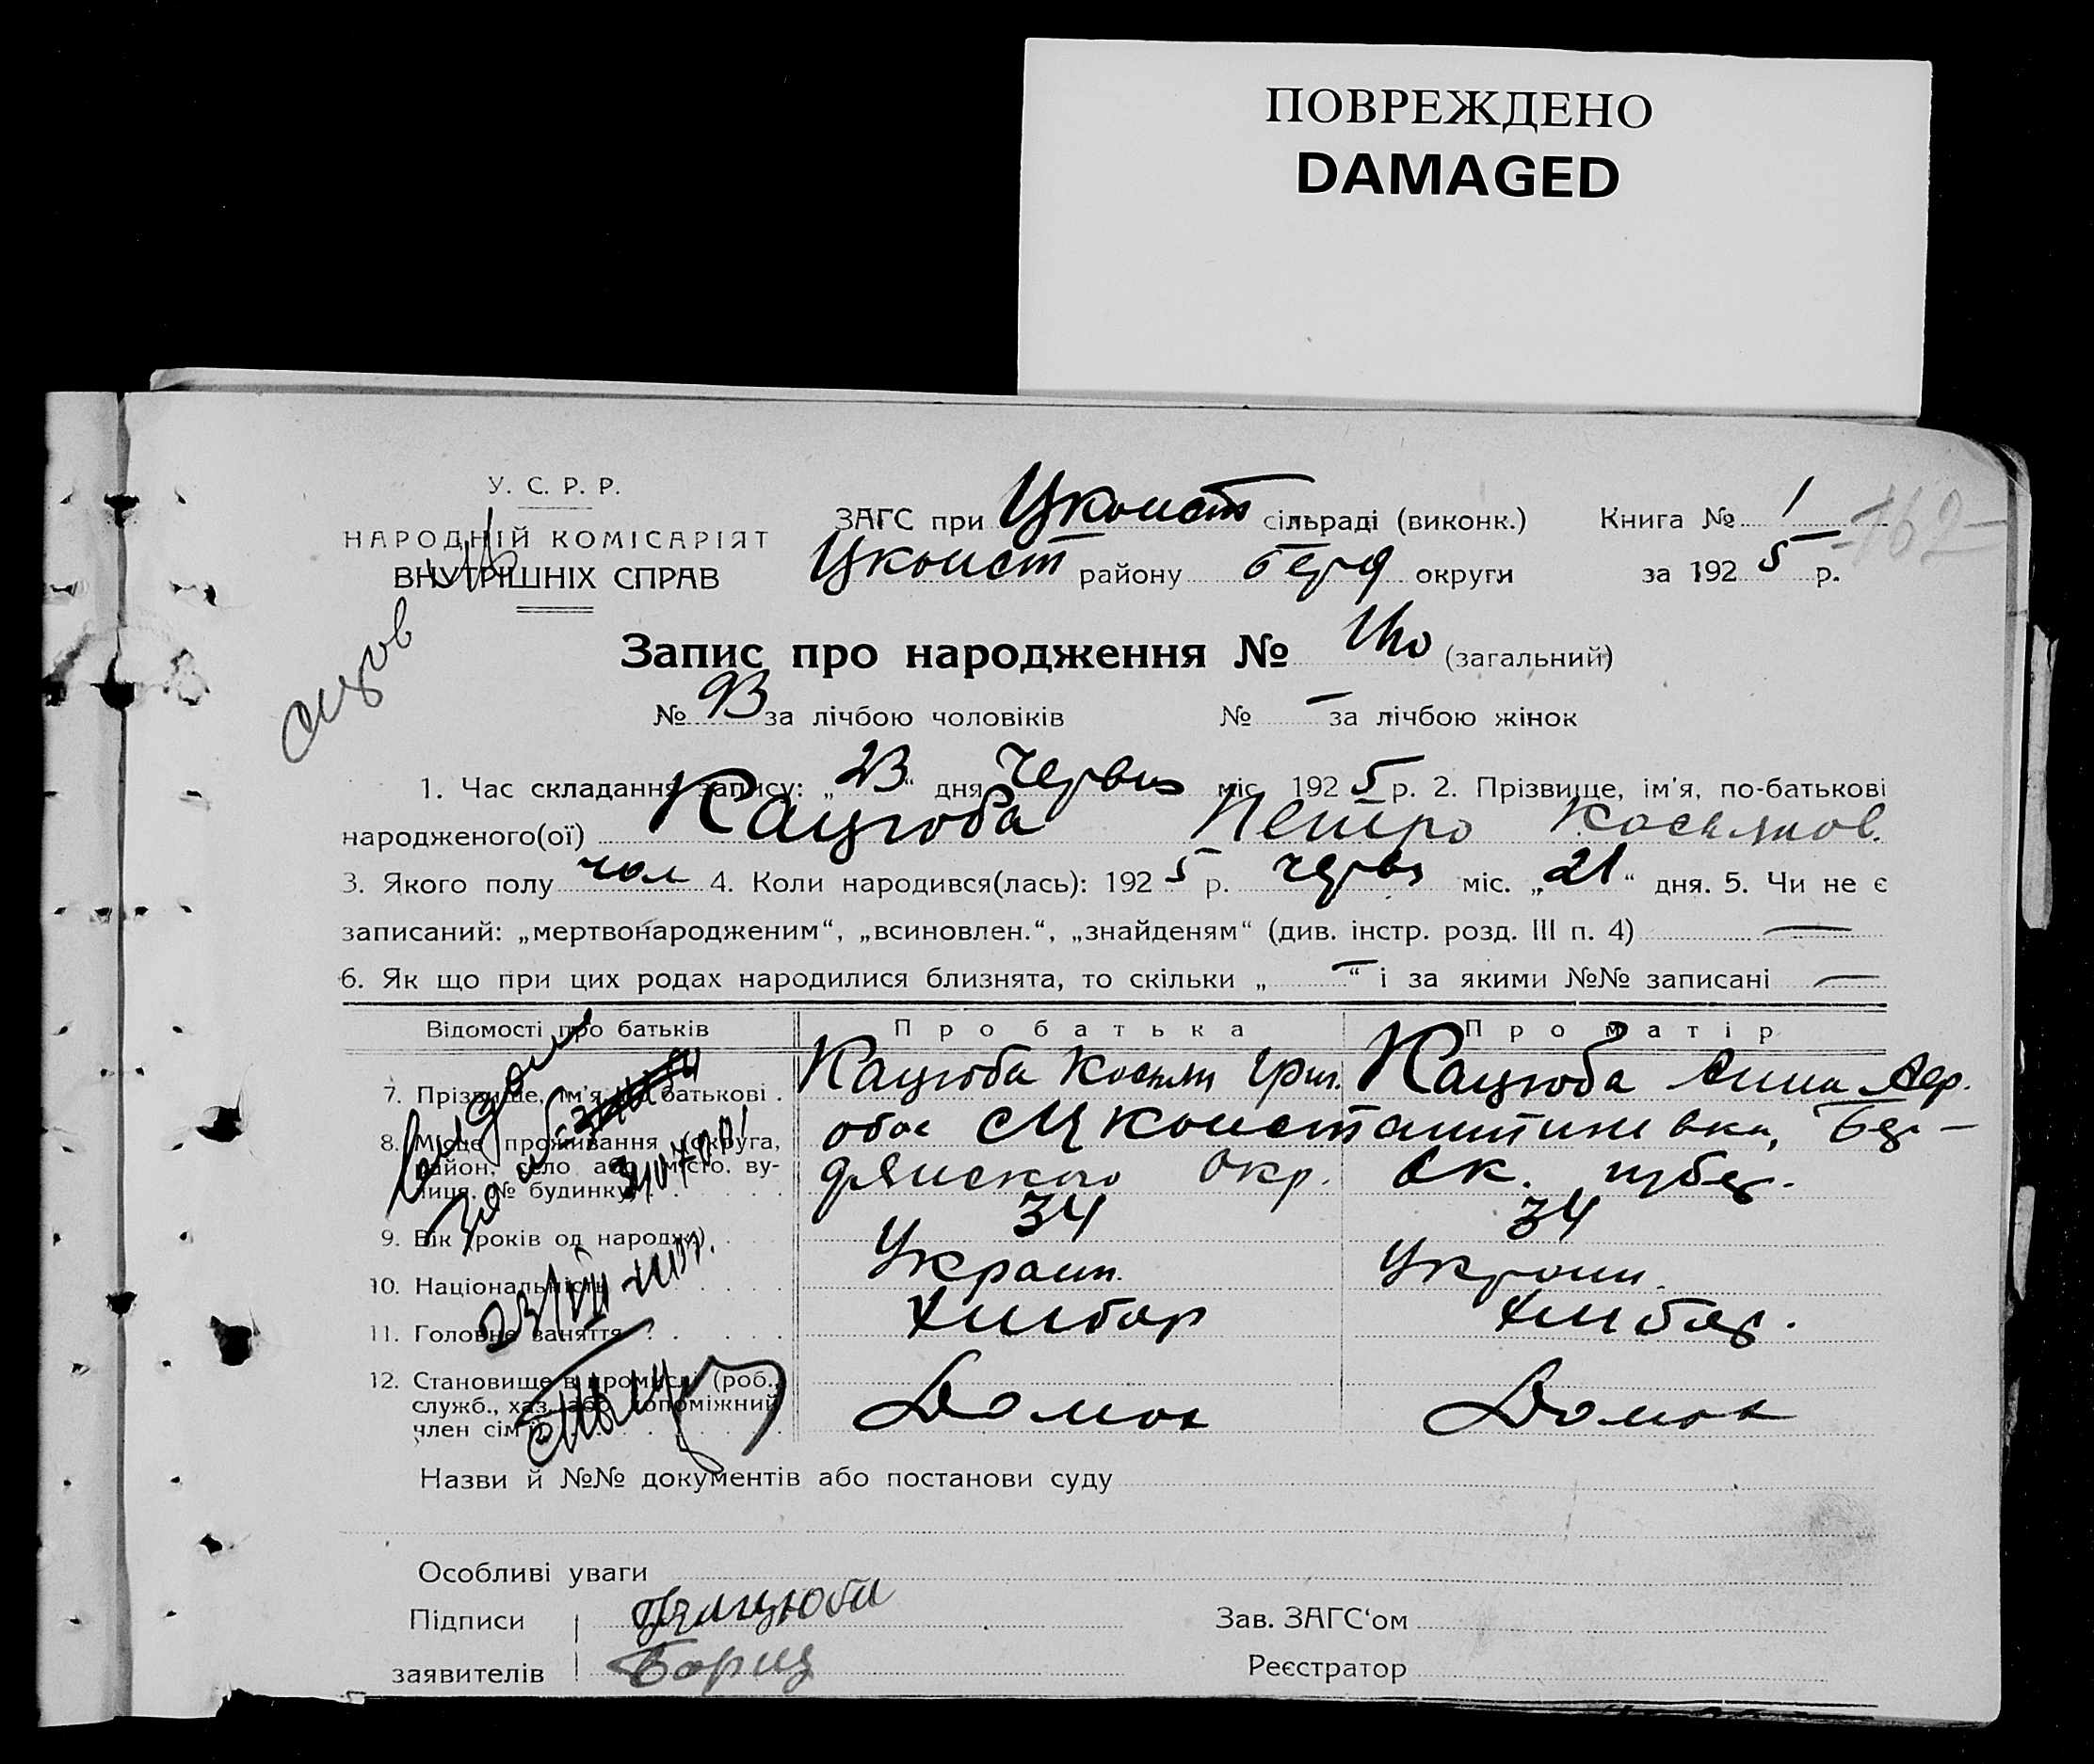 ПОВРЕЖДЕНО
DAMAGED
У. С. Р. Р.
НАРОДНІЙ КОМІСАРІЯТ
ВНУТРІШНІХ СПРАВ
ЗАГС при Цконст сільраді (виконк.) Книга № 1
162
Цконст району Берд округи за 1925 р.
Запис про народження № (загальний)
№ 93 за лічбою чоловіків № – за лічбою жінок
1. Час складання запису: „23“ дня Червня міс. 1925 р. 2. Прізвище, ім'я, по-батькові
народженого(ої) Кацюба Петро Косьянов.
3. Якого полу чол 4. Коли народився(лась): 1925 р. червня міс. „21“ дня. 5. Чи не є
записаний: „мертвонародженим“, „всиновлен.“, „знайденям“ (див. інстр. розд. III п. 4) —
6. Як що при цих родах народилися близнята, то скільки „–“ і за якими №№ записані —
Відомості про батьків Про батька Про матір
7. Прізвище, ім'я, по батькові . Кацюба Косьян Григ. Кацюба Анна
8. Місце проживання (округа, район, село або місто, вулиця, № будинку) . . . .
константиновка, Бер-
дянского Окр. Ек. губер.
9. Вік (років од народж.) . . 34 34
10. Національність . . . . Украин. Украин.
11. Головне заняття . . . . . Хлибор Хлибор.
12. Становище в промислі (роб., служб., хаз. або допоміжний член сім'ї) . . . . . Домох Домох
Назви й №№ документів або постанови суду
Особливі уваги
Підписи
заявителів
Зав. ЗАГС'ом
Реєстратор